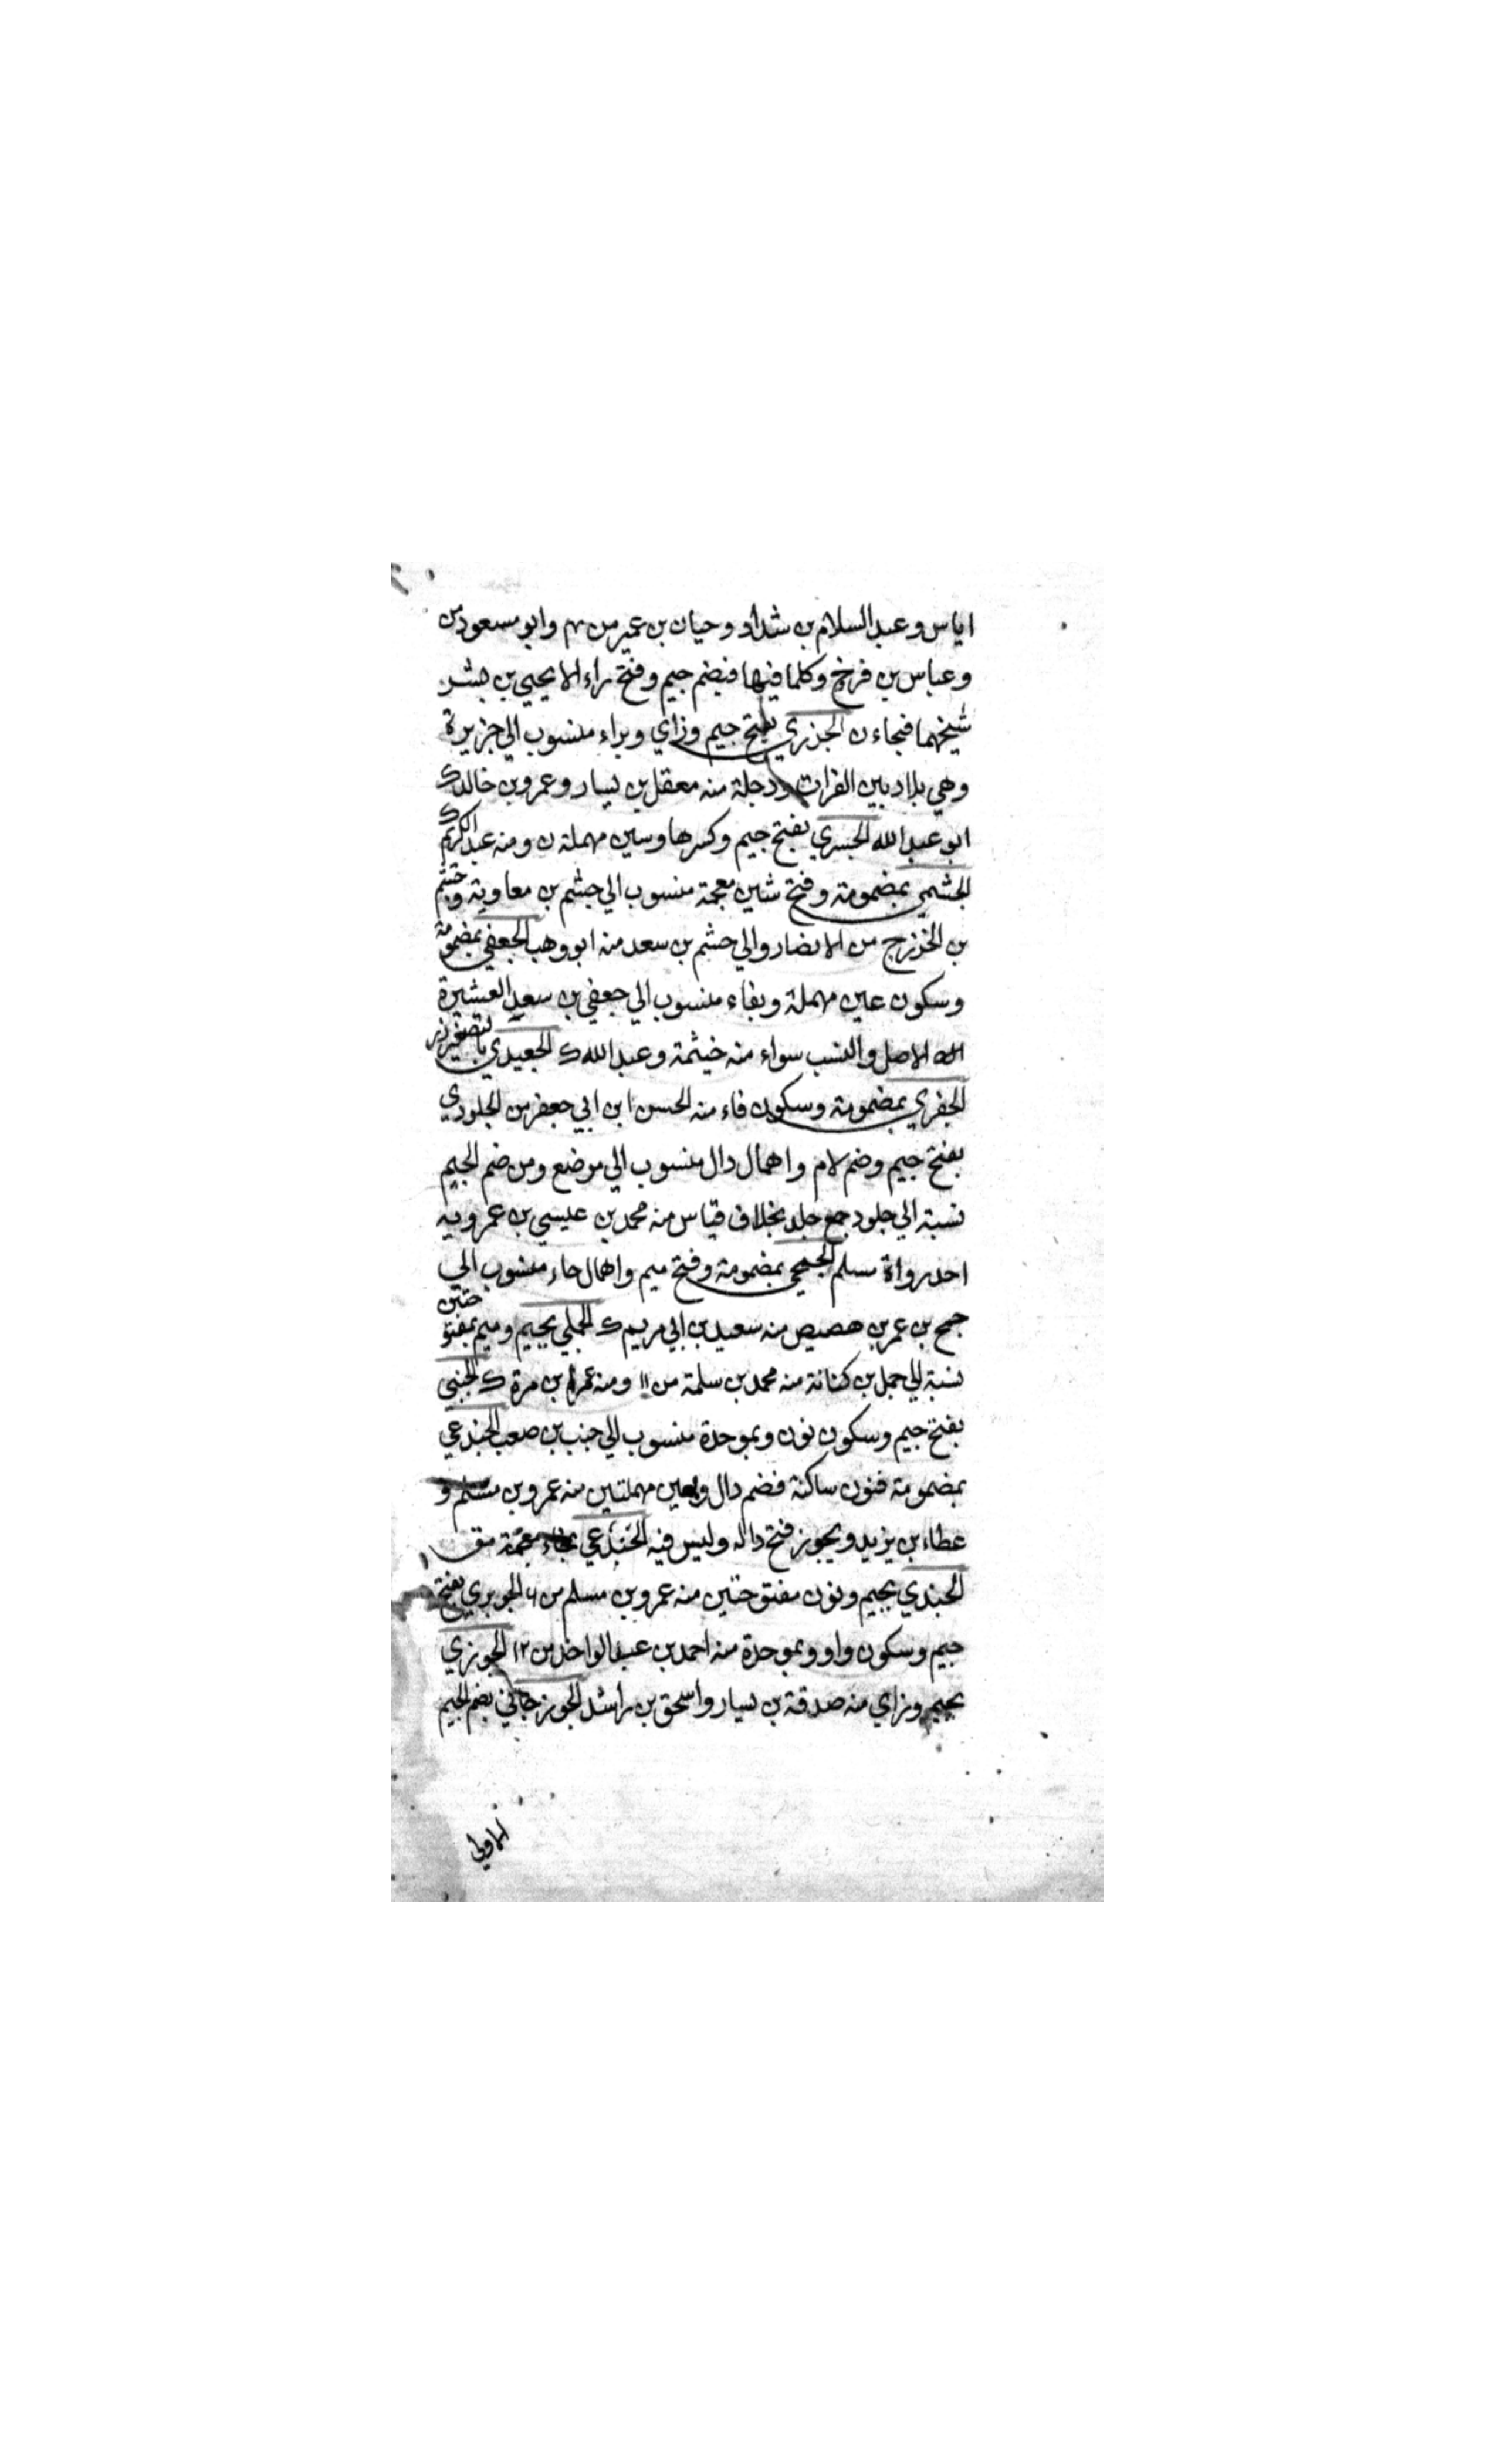 اياس وعبد السلام بن شداد وحيان بن عمير من م وابو مسعود من
وعباس بن فرخ وكلما فيها فبضم جيم وفتح راء الا يحيي بن بشر
شيخهما فبحاء ن الجزري بفتح جيم وزاي وبراء منسوب الي جزيرة
وهي بلاد بين الفرات ودجلة منه معقل بن يسار وعمرو بن خالد ك
ابو عبد الله الجسري بفتح جيم وكسرها وسين مهملة ن ومنه عبد الكريم ك
الجشمي بمضمومة وفتح شين معجمة منسوب الي جشم بن معاوية وجشم
بن الخزرج من الانصار والي جشم بن سعد منه ابو وهب الجعفي بمضمومة
وسكون عين مهملة وبفاء منسوب الي جعفي بن سعد العشيرة
الاصل والنسب سواء منه خيثمة وعبد الله ك الجعيدي بالتصغير
الجفري بمضمومة وسكون فاء منه الحسن ابن ابي جعفر من الجلودي
بفتح جيم وضم لام واهمال دال منسوب الي موضع ومن ضم الجيم
نسبة الي جلود جمع جلد بخلاف قياس منه محمد بن عيسي بن عمرويه
احد رواة مسلم الجمحي بمضمومة وفتح ميم واهمال حاء منسوب الي
جمح بن عمر بن هصيص منه سعيد بن ابي مريم ك الجملي بجيم وميم بمفتوحتين
نسبة الي جمل بن كنانة منه محمد بن سلمة من ١١ ومنه عمرو بن مرة ك الجنبي
بفتح جيم وسكون نون وبموحدة منسوب الي جنب بن صعب الجندعي
بمضمومة فنون ساكنة فضم دال وبعين مهملتين منه عمرو بن مسلم و
عطاء بن يزيد ويجوز فتح داله وليس فيه الخندعي بخاء معجمة مق
الجندي بجيم ونون مفتوحتين منه عمرو بن مسلم من ٦ الجوبري بفتح
جيم وسكون واو وبموحدة منه احمد بن عبد الواحد من ١٢ الجوزي
بجيم وزاي منه صدقة بن يسار واسحق بن راشد الجوزجاني بضم الجيم